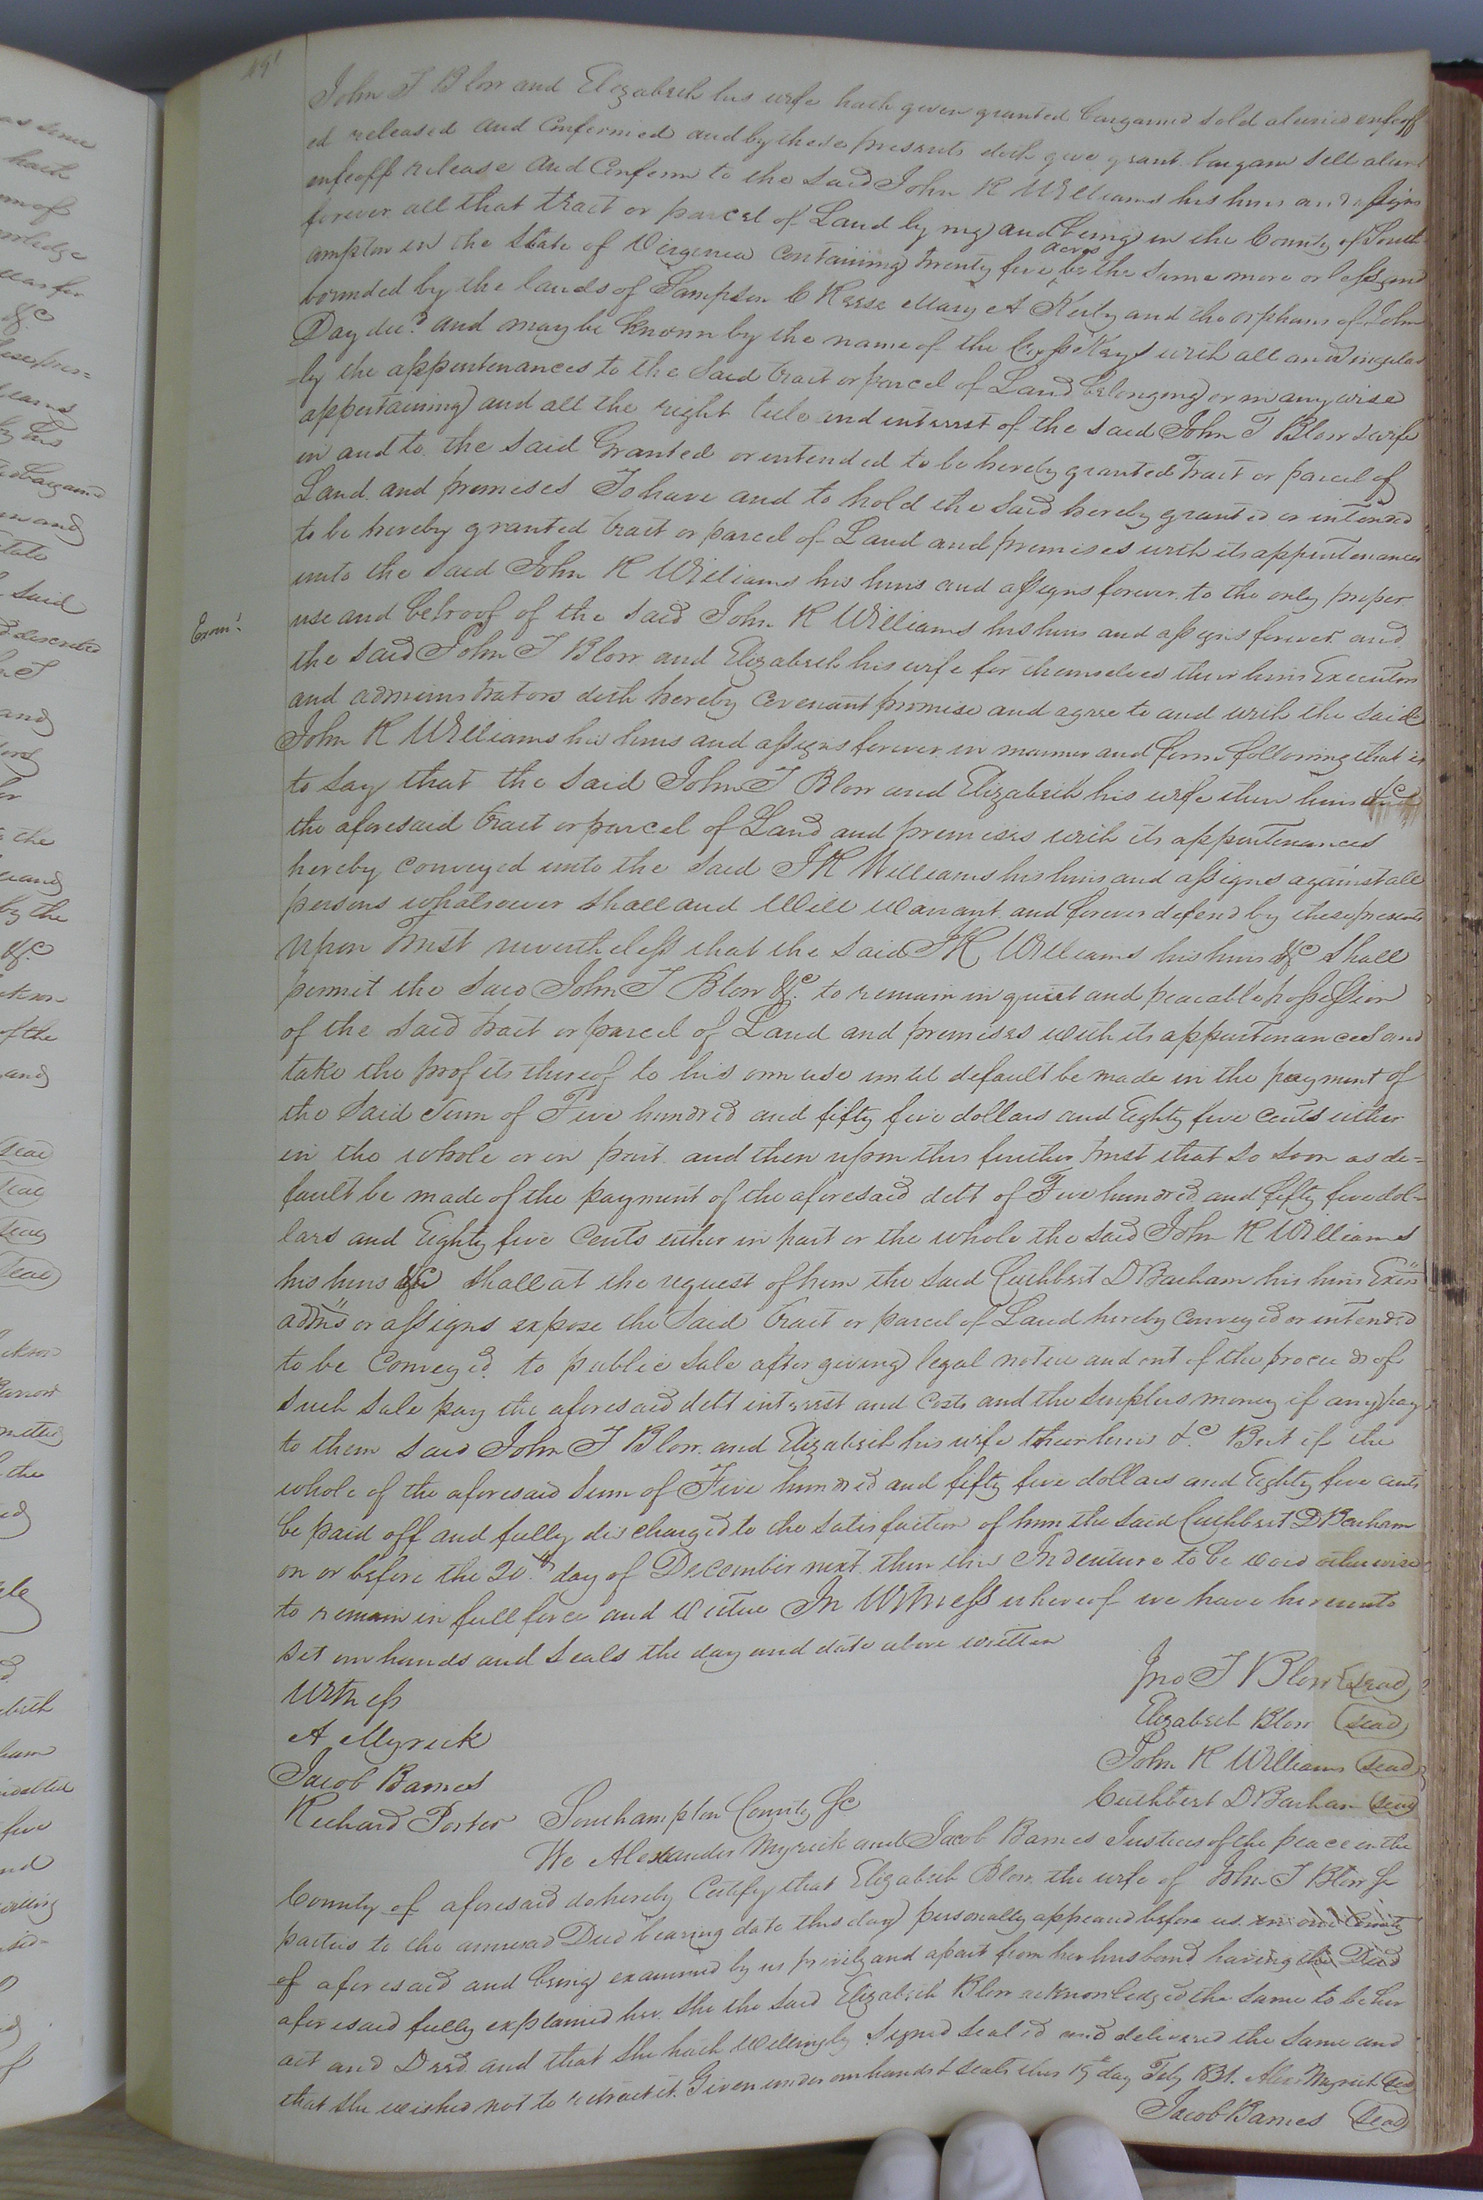 John T Blow and Elizabeth his wife hath given granted bargained sold aliened enfeoff
ed released and Confirmed and by these presents doth give grant bargain sell alien
enfeoff release and Confirm to the said John R Williams his heirs and assigns
forever all that tract or parcel of Land lying and being in the County of South
ampton in the State of Virginia Containing twenty five acres be the same more or less and
bounded by the lands of Sampson C Reese Mary A Kirby and the orphans of John
Day decd. and may be known by the name of the Cross Keys with all and singular
ly the appurtenances to the said tract or parcel of Land belonging or in any wise
appertaining and all the right title and interest of the said John T Blow & wife
in and to the said Granted or intended to be hereby granted Tract or parcel of
Land and premises To have and to hold the said hereby granted or intended
to be hereby granted tract or parcel of Land and premises with its appurtenances
unto the said John R Williams his heirs and assigns forever to the only proper
use and behoof of the said John R Williams his heirs and assigns forever and
Exam.d
the said John T Blow and Elizabeth his wife for themselves their heirs Executors
and administrators doth hereby Covenant promise and agree to and with the said
John R Williams his heirs and assigns forever in manner and form following that is
to say that the said John T Blow and Elizabeth his wife their heirs &c
the aforesaid tract or parcel of Land and premises with its appurtenances
hereby conveyed unto the said J R Williams his heirs and assigns against all
persons whatsoever shall and Will warrant and forever defend by these presents
Upon trust nevertheless that the said J R Williams his heirs &c Shall
permit the said John T Blow &c. to remain in quiet and peacable possession
of the said tract or parcel of Land and premises with its appurtenances and
take the profits thereof to his own use until default be made in the payment of
the said Sum of Five hundred and fifty five dollars and Eighty five Cents either
in the whole or in part and then upon this further trust that so soon as de=
fault be made of the payment of the aforesaid debt of Five hundred and fifty five dol=
lars and Eighty five Cents either in part or the whole the said John R Williams
his heirs &c shall at the request of him the said Cuthbert D Barham his heirs Exrs
admrs or assigns expose the said tract or parcel of Land hereby Conveyed or intended
to be Conveyed to public sale after giving legal notice and out of the proceeds of
such sale pay the aforesaid debt interest and Costs and the surplus money if any pay
to them said John T Blow and Elizabeth his wife their heirs &c But if the
whole of the aforesaid sum of Five hundred and fifty five dollars and Eighty five cents
be paid off and fully discharged to the satisfaction of him the said Cuthbert D Barham
on or before the 20th day of December next then this Indenture to be void otherwise
to remain in full force and virtue In Witness whereof we have hereunto
set our hands and seals the day and date above written
Witness
Jno T Blow (seal)
A Myrick
Elizabeth Blow (seal)
Jacob Barnes
John R Williams (seal)
Richard Porter
Cuthbert D Barham (seal)
Southampton County Sc
We Alexander Myrick and Jacob Barnes Justices of the peace in the
County of aforesaid do hereby Certify that Elizabeth Blow the wife of John T Blow Jr
parties to the annexed Deed bearing date this day personally appeared before us in our County
of aforesaid and being examined by us privily and apart from her husband having the Deed
aforesaid fully explained her She the said Elizabeth Blow acknowledged the same to be her
act and Deed and that she hath Willingly signed sealed and delivered the same and
that she wished not to retract it. Given under our hands & seals this 19th day Feby 1831. Alex Myrick (seal)
Jacob Barnes (seal)